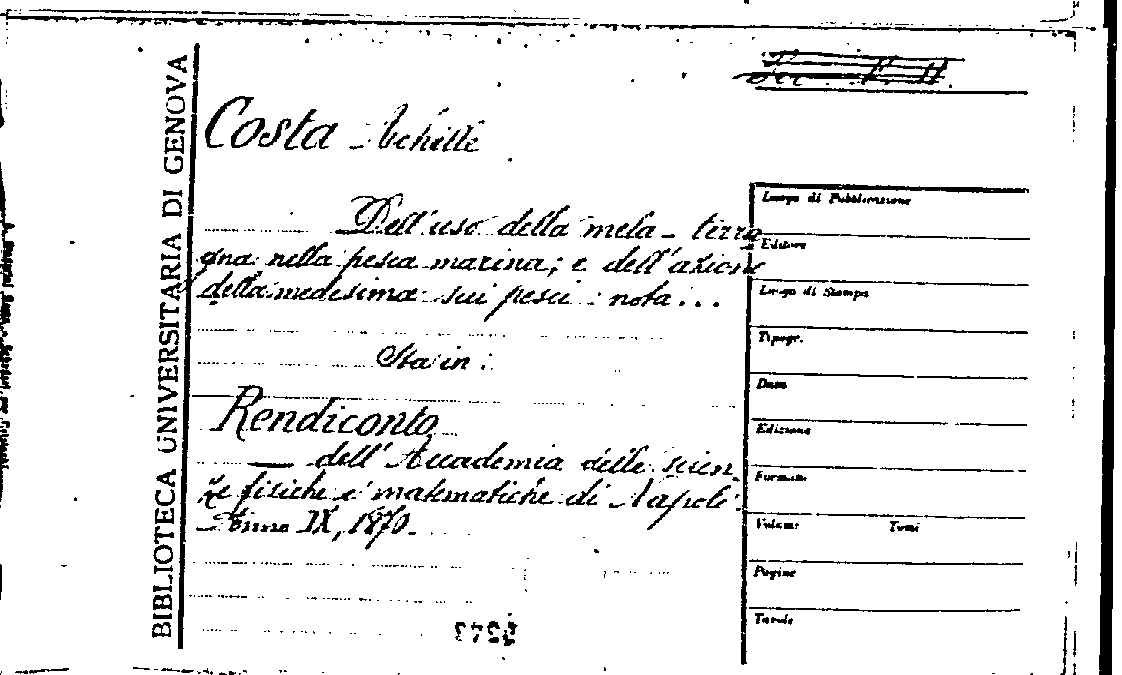 BIBLIOTECA UNIVERSITARIA DI GENOVA
Costa Achille
Dell'uso della mela-terra
gna nella pesca marina; e dell'azione
della medesima sui pesci: nota...
Sta in:
Rendiconto
— dell'Accademia delle scien-
ze fisiche e matematiche di Napoli.
Anno IX, 1870.
Luogo di Pubblicazione
Editore
Luogo di Stampa
Tipogr.
Data
Edizione
Formato
Volume Tomi
Pagine
Tavole